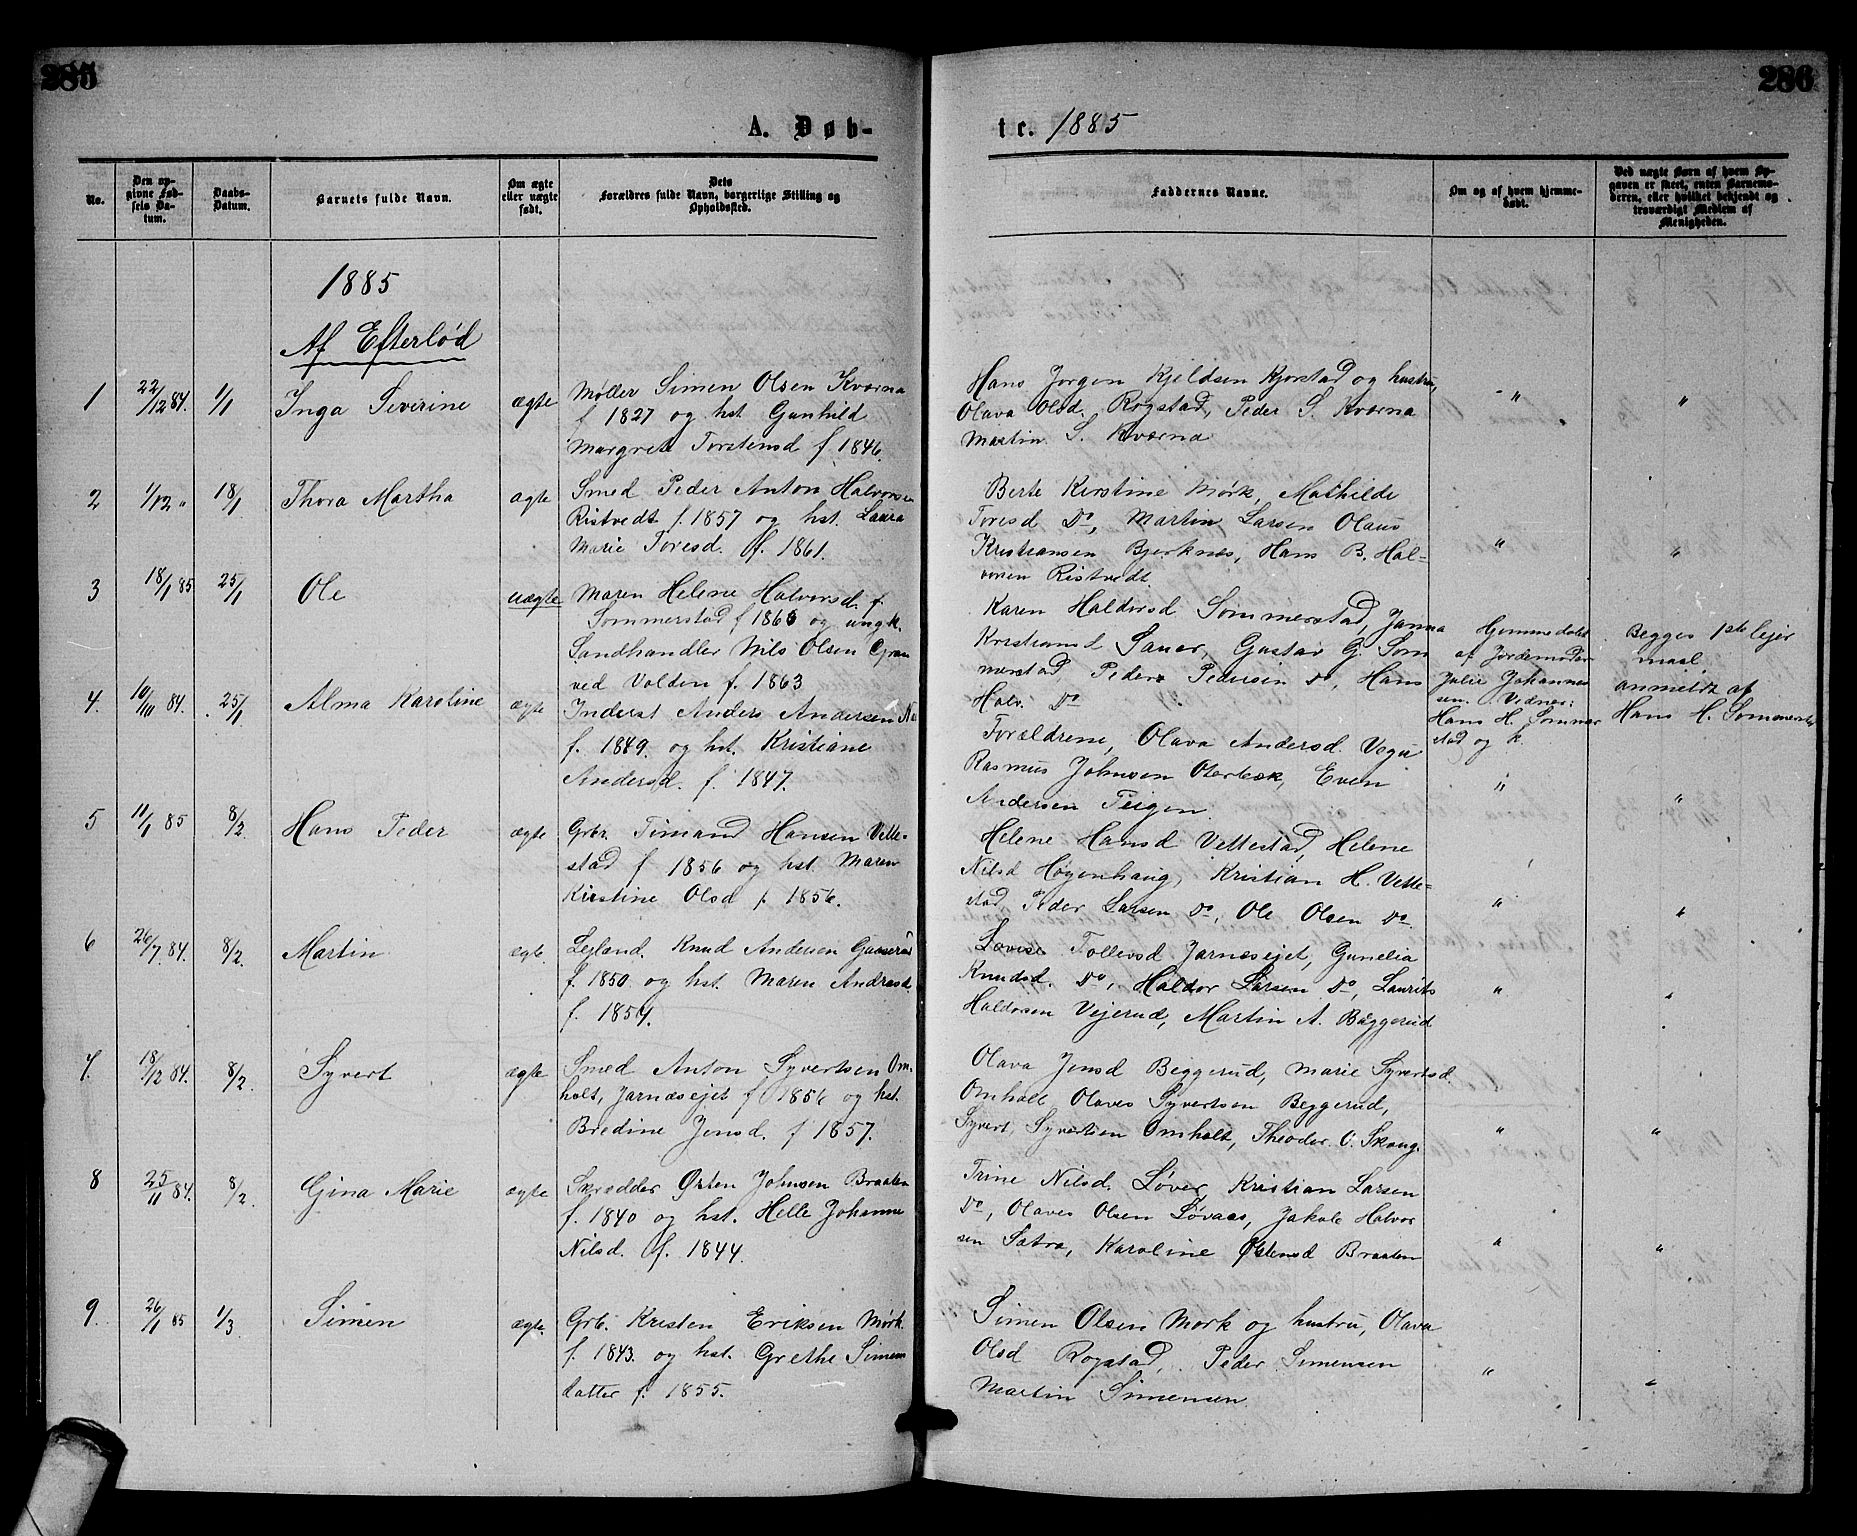 285
286
A. Døb-
te. 1885
No.
Den op-
givne Fød-
sels Da-
tum.
Daabs-
Datum.
Barnets fulde Navn.
Om ægte
eller uægte
født.
Dets
Forældres fulde Navn, borgerlige Stilling og
Opholdssted.
Faddernes Navne.
Om og af hvem hjemme-
døbt.
Ved uægte Børn af hvem Op-
gaven er skeet, enten Barnemo-
deren, eller hvilket bekjendt og
troværdigt Medlem af
Menigheden.
1885
Af Efterløb
1 22/12 84. 1/1 Inga Severine ægte
Møller Simen Olsen Kværna
f 1827 og hst Gunhild
Margrete Torstensd f. 1846.
Hans Jørgen Kjeldsen Kjørstad og hustru,
Olava Olsd. Rogstad, Peder S. Kværna
Martin S. Kværna
" "
2 1/12 " 18/1 Thora Martha ægte
Smed Peder Anton Halvorsen
Ristvedt f. 1857 og hst. Laura
Marie Toresd. f. 1861.
Berte Kirstine Mørk, Mathilde
Toresd Do, Martin Larsen Olaus
Kristiansen Bjerknes, Hans B. Hal-
vorsen Ristvedt.
" "
3 18/1 85 25/1 Ole uægte
Maren Helene Halvorsd. f.
Sommerstad f 1863 og ungk.
Sandhandler Nils Olsen Gran
ved Volden f. 1863
Karen Haldorsd Sommerstad, Janna
Kristiansd Sauer, Gustav G. Som
merstad, Peder Pedersen Do, Hans
Halv. Do
Hjemmedøbt
af Jordemoder
Julie Johannes
sen. Vidnes:
Hans H. Sommer
stad og h.
Begges 1ste lejer
maal
anmeldt af
Hans H. Sommerstad
4. 10/10 84. 25/1 Alma Karoline ægte
Inderst Anders Andersen
f. 1849. og hst. Kristiane
Andersd. f. 1847.
Forældrene, Olava Andersd. Vegu
Rasmus Johnsen Oterbæk, Even
Andersen Teigen.
" "
5 11/1 85 8/2. Hans Peder ægte
Grbr. Timand Hansen Vette-
stad f 1856 og hst. Maren
Kirstine Olsd f. 1856.
Helene Hansd Vettestad, Helene
Nilsd Høgenhaug, Kristian H. Vette-
stad Peder Larsen Do, Ole Olsen Do
" "
6 26/7 84. 8/2. Martin ægte.
Lejland. Knud Andersen
f. 1850. og hst. Maren Andrasd.
f. 1854.
Lovise Tollevsd Jarnæsejet, Gunelia
Knudsd. Do, Haldor Larsen Do, Laurits
Haldosen Vejerud, Martin A. Bæggerud
" "
7. 18/12 84. 8/2. Syvert ægte
Smed Anton Syvertsen Om-
holt, Jarnæsejet f 1856 og hst.
Bredine Jensd. f 1857.
Olava Jensd Beggerud, Marie Syvertsd.
Omholt Olaves Syvertsen Beggerud,
Syvert Syvertsen Omholt, Theodor O. Skaug.
" "
8 25/11 84. 8/2. Gina Marie ægte
Skrædder Østen Johnsen Braaten
f. 1840 og hst. Helle Johanne
Nilsd. f. 1844.
Trine Nilsd. Løver, Kristian Larsen
Do, Olaves Olsen Løvaas, Jakob Halvor
sen Sætra, Karoline Østensd Braaten
" "
9 26/1 85 1/3 Simen ægte.
Grb. Kristen Eriksen Mørk.
f. 1843. og hst. Grethe Simens
datter f. 1855.
Simen Olsen Mørk og hustru, Olava
Olsd Rogstad, Peder Simensen
Martin Simensen.
" "